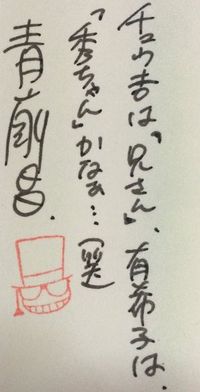 チュウ吉は、「兄さん」、有希子は、
「秀ちゃん」かなぁ…(笑)
青山剛昌.